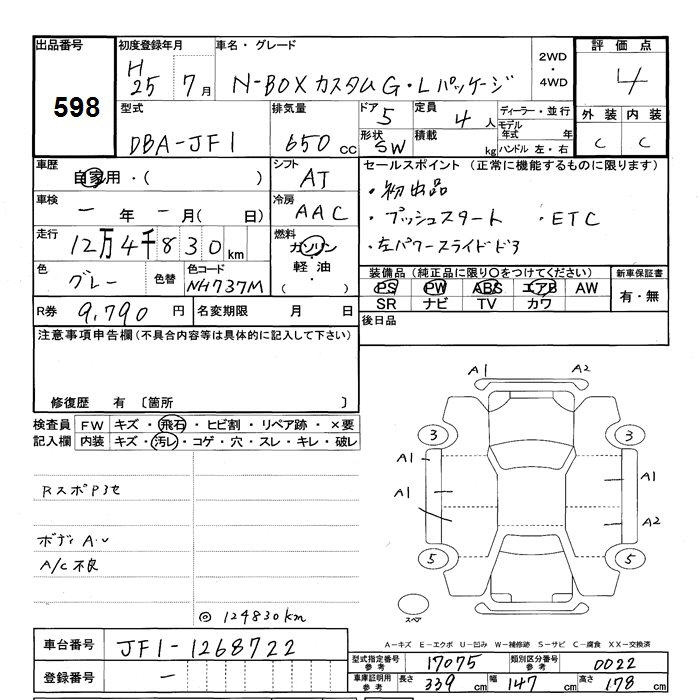 出品番号 初度登録年月 車名・グレード 2WD ・ 4WD 評価点
598 H25 7月 N-BOXカスタムG・Lパッケージ 4
型式 排気量 ドア 5 定員 4人 ディーラー・並行 外装 内装
DBA-JF1 650cc 形状 SW 積載 kg モデル年式 年 C C
ハンドル 左・右
車歴 自家用・( ) シフト AT セールスポイント (正常に機能するものに限ります)
車検 ー年ー月( 日) 冷房 AAC ・初出品
・プッシュスタート ・ETC
走行 12万4千830km 燃料 ガソリン・軽油・( ) ・左パワースライドドア
色 グレー 色替 色コード NH737M 装備品 (純正品に限り○をつけてください) 新車保証書
PS PW ABS エアB AW 有・無
SR ナビ TV カワ
R券 9,790円 名変期限 月 日 後日品
注意事項申告欄 (不具合内容等は具体的に記入して下さい)
修復歴 有 〔箇所 〕
検査員 FW キズ・飛石・ヒビ割・リペア跡・×要
記入欄 内装 キズ・汚レ・コゲ・穴・スレ・キレ・破レ
A1 A2
3 3
A1 A1
A1 A2
5 5
スペア
ボディA.U
A/C不良
◎124830km
A−キズ E−エクボ U−凹み W−補修跡 S−サビ C−腐食 XX−交換済
車台番号 JF1-1268722 型式指定番号 参考 17075 類別区分番号 参考 0022
登録番号 ー 車庫証明用 参考 長さ 339cm 幅 147cm 高さ 178cm